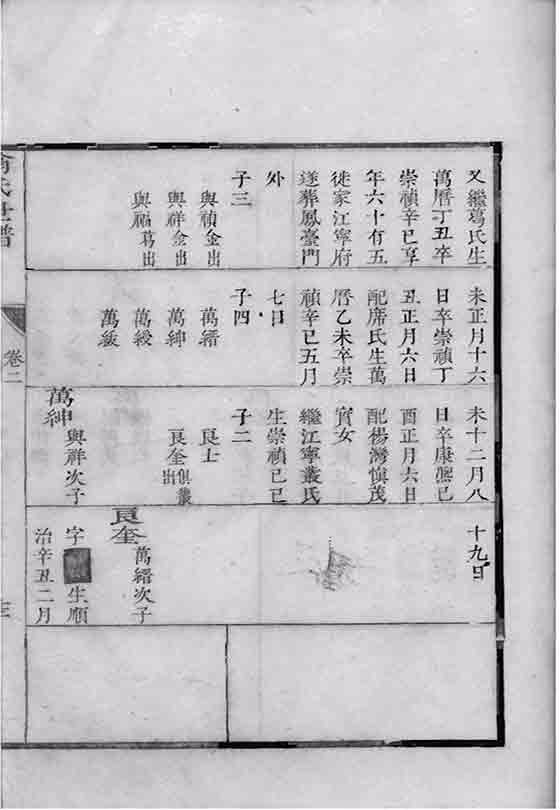 又繼葛氏生
萬曆丁丑卒
崇禎辛巳享
年六十有五
徙家江寧府
遂葬鳳臺門
外
子三
與禎金出
與祥金出
與福葛出
未正月十六
日卒崇禎丁
丑正月六日
配席氏生萬
曆乙未卒崇
禎辛巳五月
七日
子四
萬縉
萬紳
萬綬
萬紱
未十二月八
日卒康熙己
酉正月六日
配楊灣慎茂
實女
繼江寧叢氏
生崇禎己巳
子二
良士
良奎俱叢出
萬紳
與祥次子
十九日
良奎
萬縉次子
字 生順
治辛丑二月
氏世譜
卷二